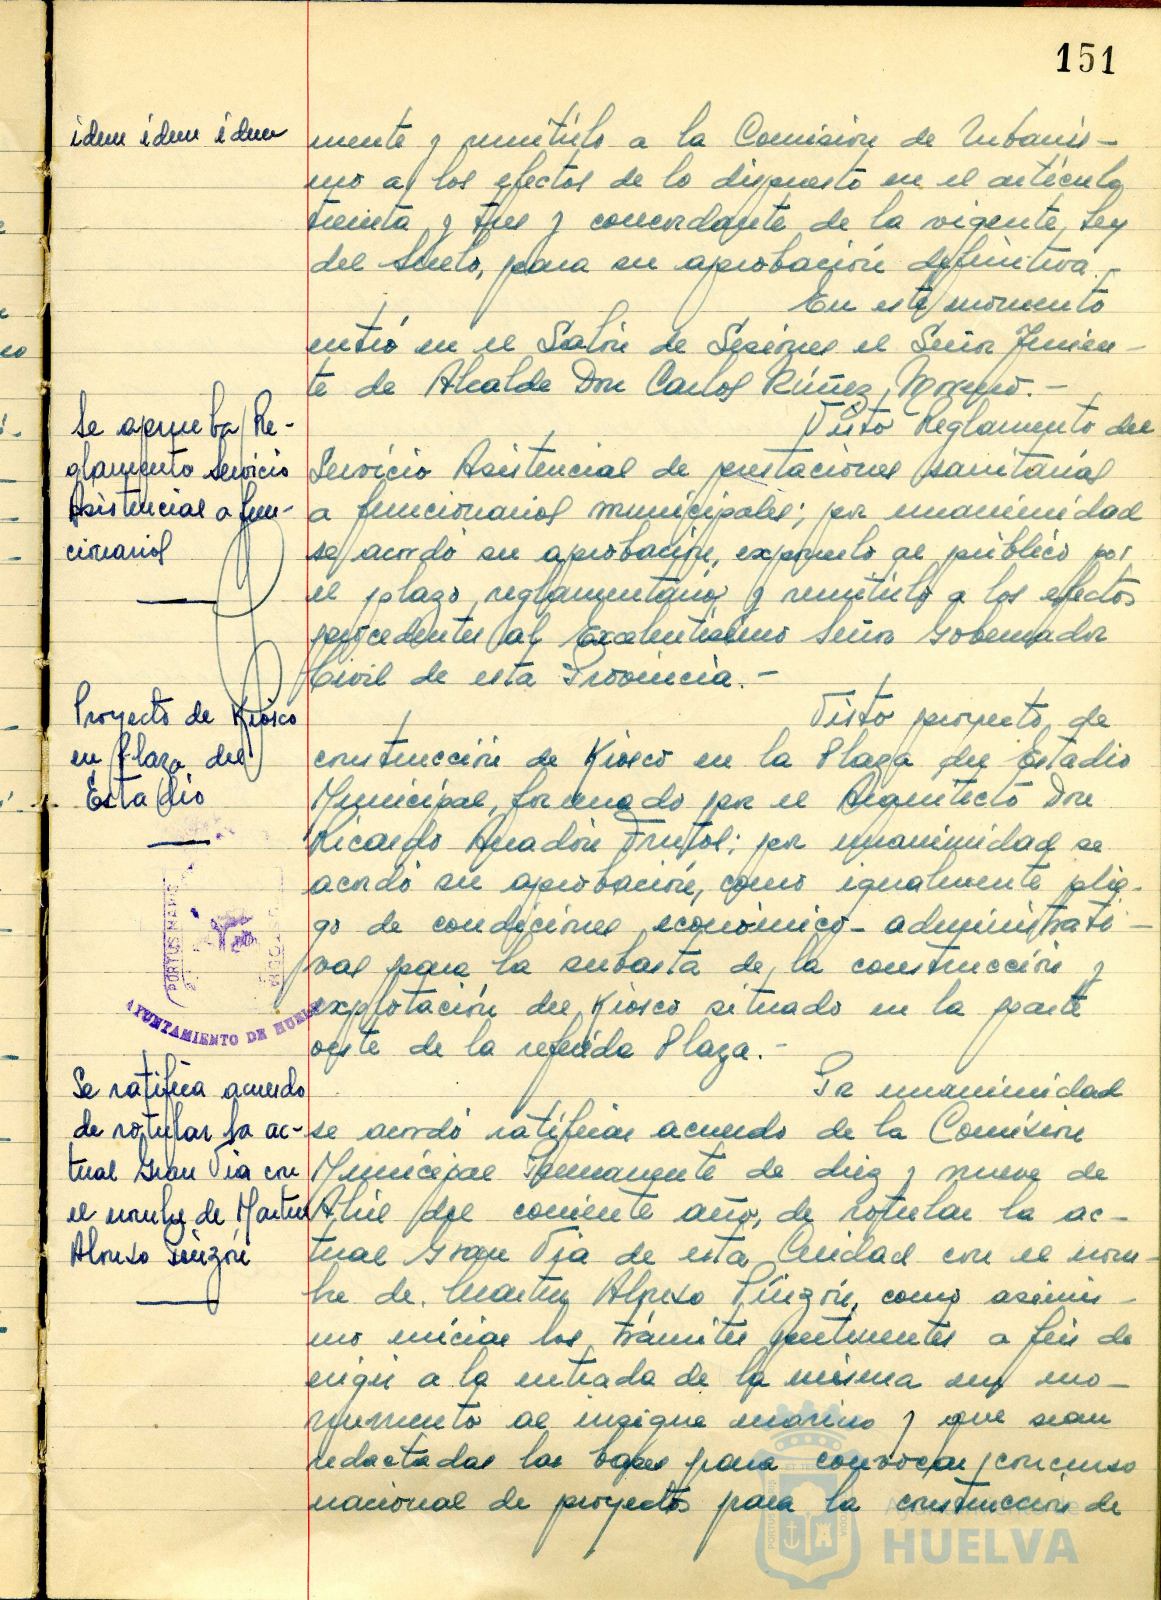 151
idem idem idem
mente y remitirlo a la Comisión de Urbanis-
mo a los efectos de lo dispuesto en el artículo
treinta y tres y concordante de la vigente Ley
del Suelo, para su aprobación definitiva.-
En este momento
entró en el Salón de Sesiones el Señor Tenien-
te de Alcalde Don Carlos Núñez Moreno.-
Se aprueba Re-
glamento Servicio
Asistencial a fun-
cionarios
Visto Reglamento del
Servicio Asistencial de prestaciones sanitarias
a funcionarios municipales; por unanimidad
se acordó su aprobación, exponerlo al público por
el plazo reglamentario y remitirlo a los efectos
procedentes al Excelentísimo Señor Gobernador
Civil de esta Provincia.-
Proyecto de Kiosco
en Plaza del
Estadio
Visto proyecto de
construcción de Kiosco en la Plaza del Estadio
Municipal, formado por el Arquitecto Don
Ricardo Anadón Frutos; por unanimidad se
acordó su aprobación, como igualmente plie-
go de condiciones económico-administrati-
vas para la subasta de la construcción y
explotación del Kiosco situado en la parte
oeste de la referida Plaza.-
PORTUS MARIS
AYUNTAMIENTO DE HUELVA
Se ratifica acuerdo
de rotular la ac-
tual Gran Vía con
el nombre de Martín
Alonso Pinzón
Por unanimidad
se acordó ratificar acuerdo de la Comisión
Municipal Permanente de diez y nueve de
Abril del corriente año, de rotular la ac-
tual Gran Vía de esta Ciudad con el nom-
bre de Martín Alonso Pinzón, como asimis-
mo iniciar los trámites pertinentes a fin de
erigir a la entrada de la misma un mo-
numento al insigne marino y que sean
redactadas las bases para convocar concurso
nacional de proyectos para la construcción de
Ayuntamiento de
HUELVA